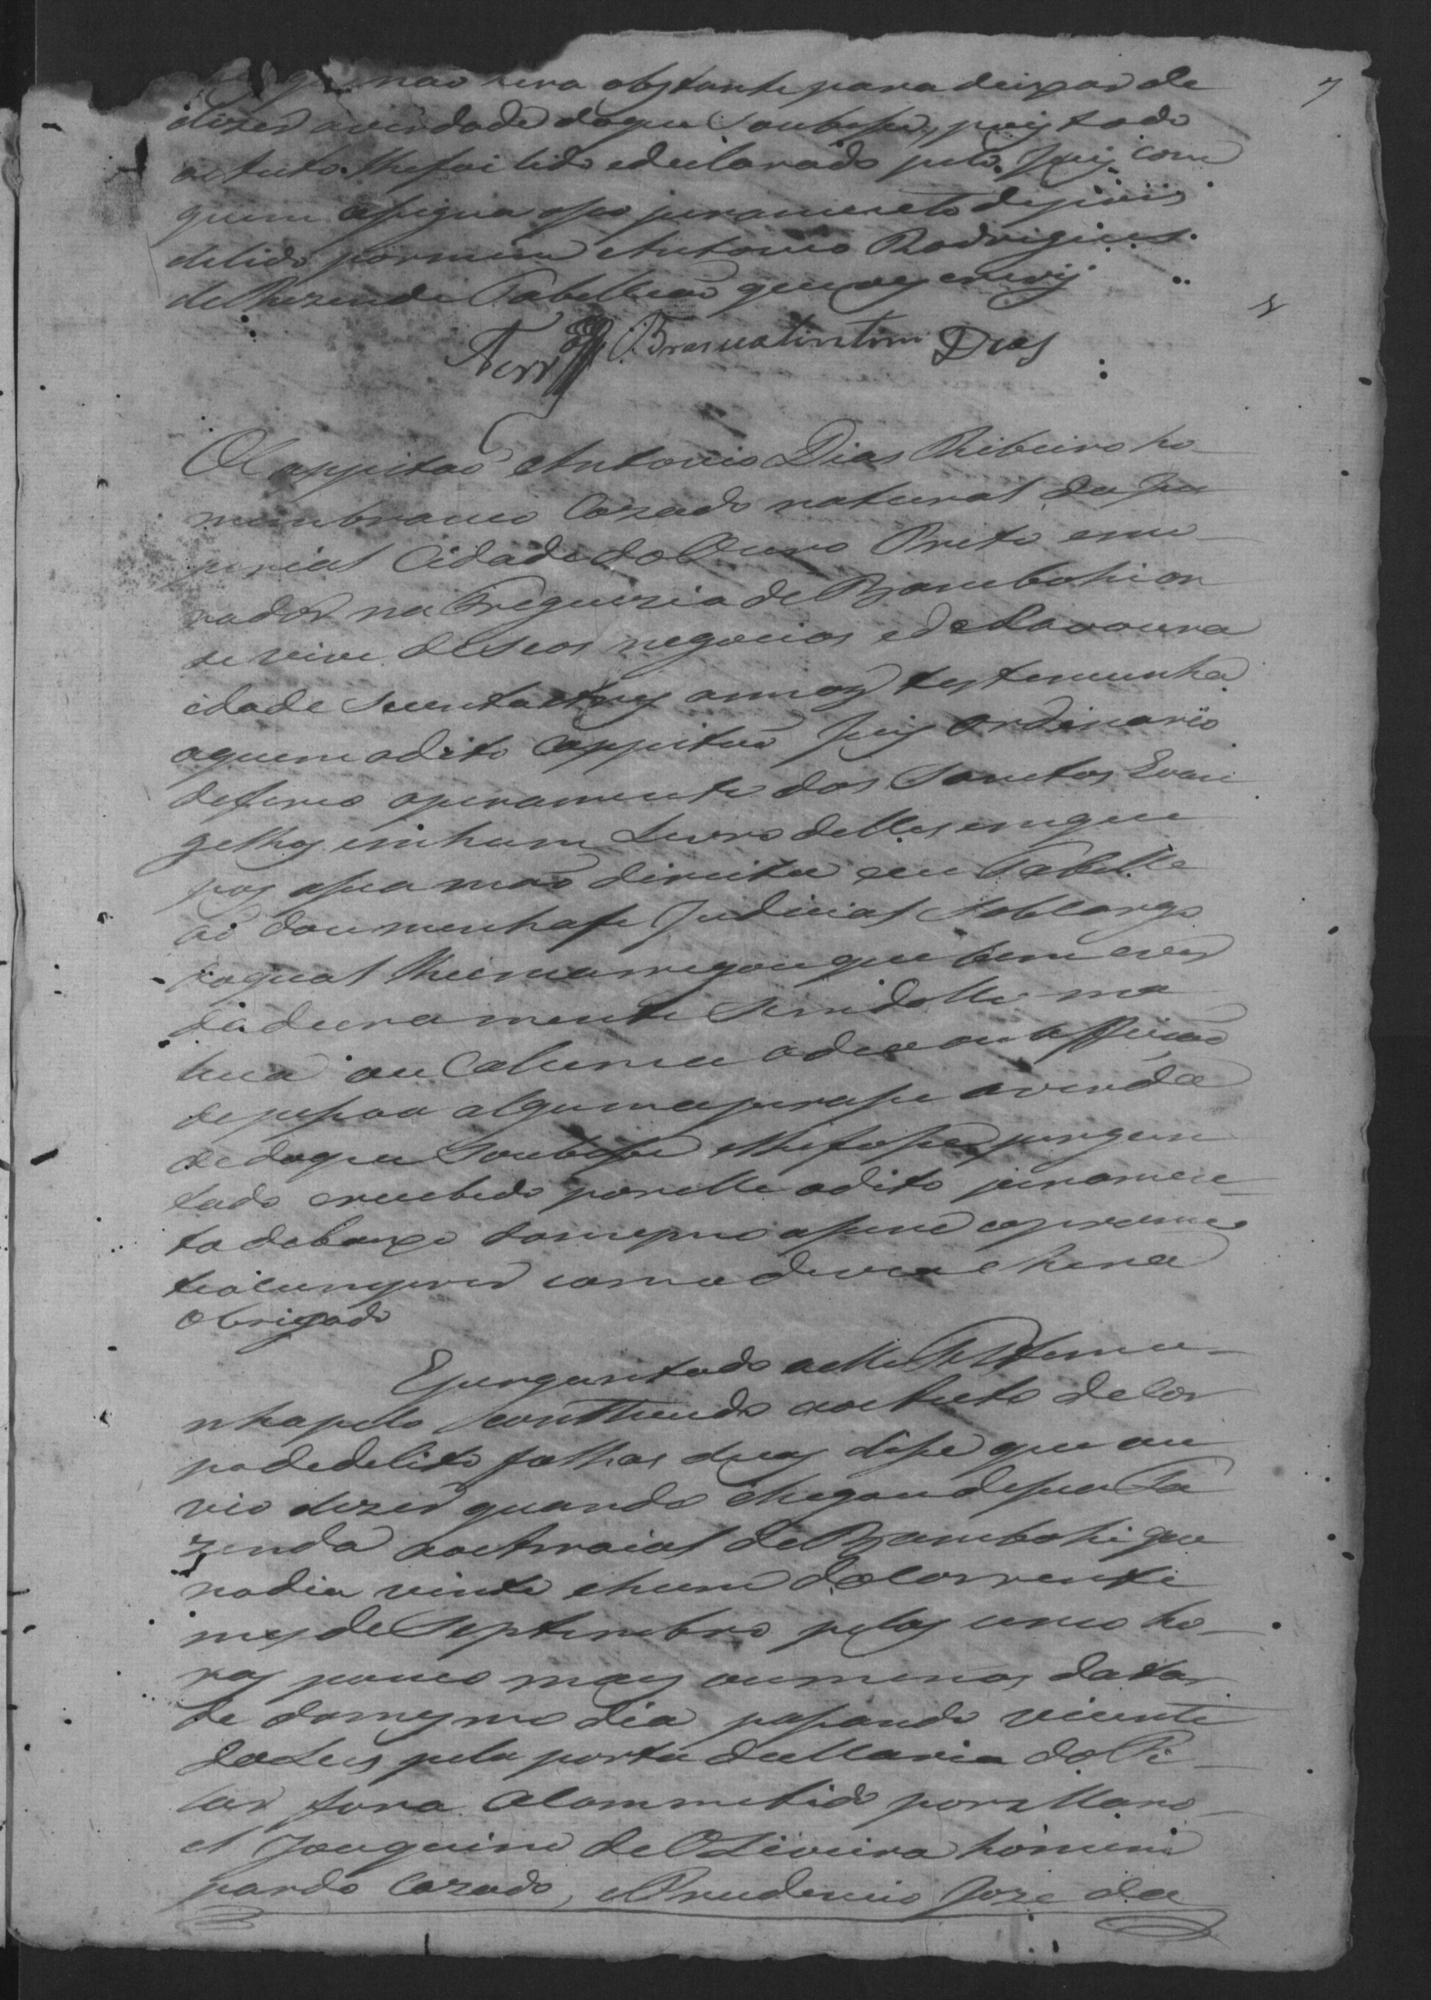 7
que nao sera obstante para deixar de
dizer averdade doque Soubesse, pois todo
o Auto lhefoi lido edeclarado pelo Juiz com
quem assigna oseo juramento depois
delido por mim Antonio Rodrigues
de Rezende Tabelliaõ que oescrevy
Dias
OCappitaõ Antonio Dias Ribeiro ho-
mem branco Cazado natural da Im
perial Cidade do Ouro Preto emo-
rador na Freguezia de Bambohi on
de vive deseos negocios edeLavoura
idade secenta etres annos testemunha
aquem odito Cappitaõ Juiz Ordinario
deferio ojuramento dos Santos Evan
gelhos emhum Livro delles emque
pos asua maõ direita eeu Tabelli
aõ dou minhafe Judicial Sobcargo
doqual lheemcarregou que bem ever
dadeiramente Semdollo ma
licia ou Calumnia odio ou affeiçaõ
depessoa algumajurasse averda
de doque Soubesse elhefosse pergun
tado erecebido porelle odito juramen-
to debaxo domesmo assim oprome
teo cumprir como devia ehera
obrigado
Eperguntado aelle Testemu-
nha pelo Contheudo noAuto de Cor
po dedelito folhas duas disse que ou
vio dizer quando chegou desua Fa
zenda aoArraial de Bambohi que
nodia vinte ehum doCorrente
mes de Septembro pelas cinco ho-
ras pouco mais oumenos datar
de domesmo dia passando Vicente
daLuz pela porta deMaria doPi-
lar fora Acommetido por Mano-
el Joaquim de Oliveira homem
pardo Cazado, ePrudencio Joze da